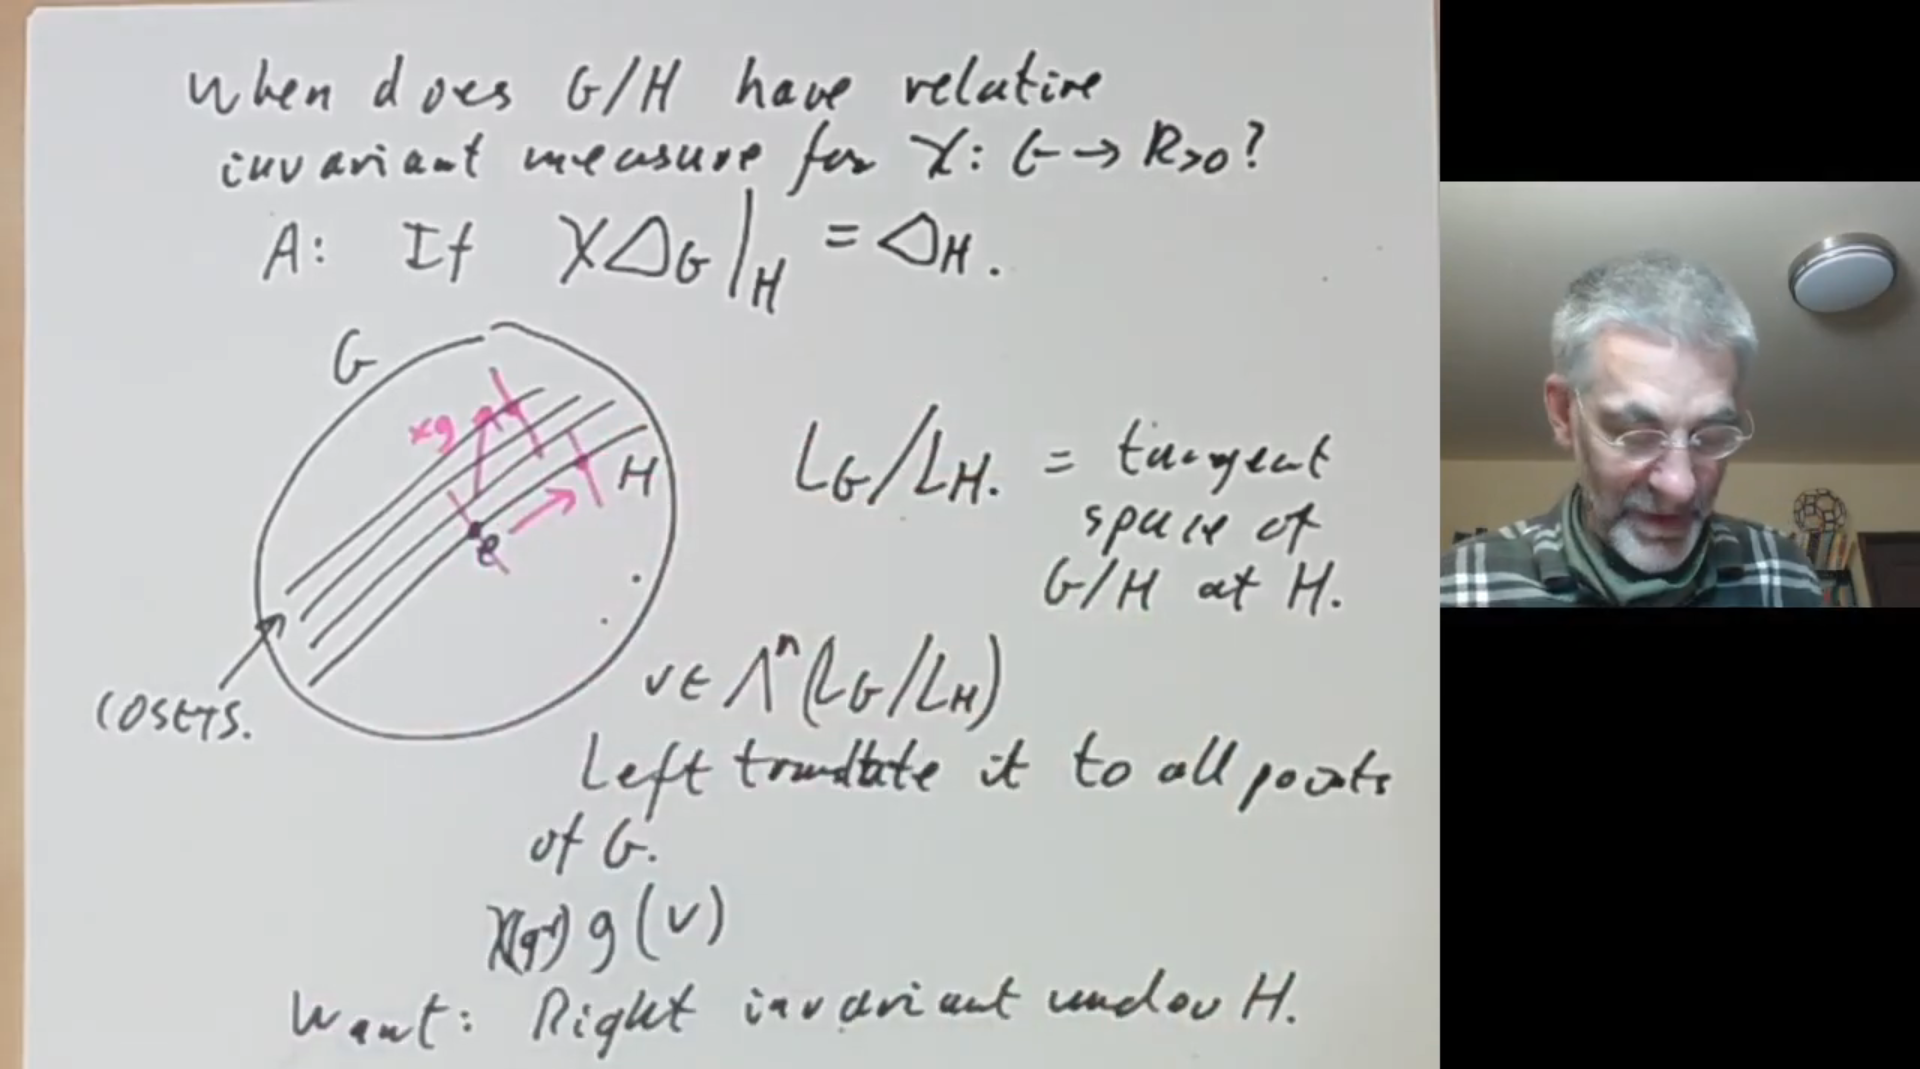 When does G/H have relative
invariant measure for χ: G → R>0?
A: If χΔG|H = ΔH.
G
×g
H
e
COSETS.
LG/LH. = tangent
space of
G/H at H.
v ∈ Λⁿ(LG/LH)
Left translate it to all points
of G.
χ(g⁻¹) g(v)
Want: Right invariant under H.